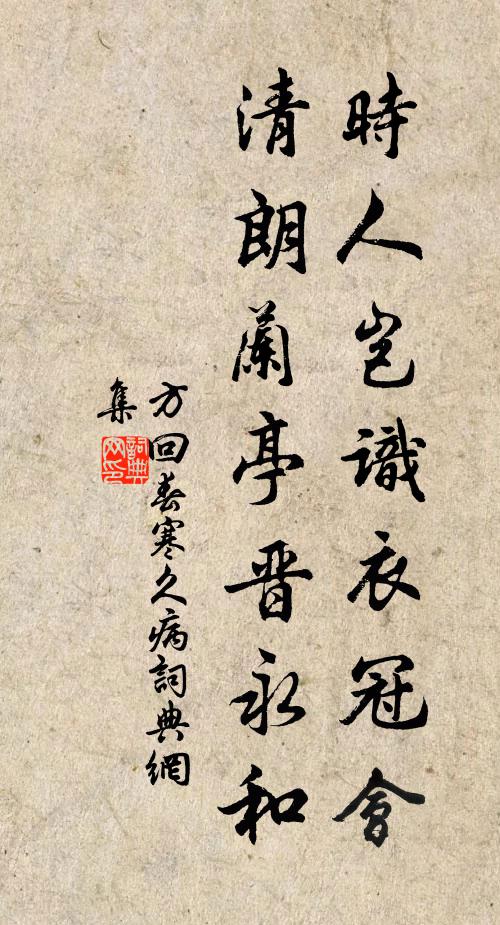 時人豈識衣冠會
清朗蘭亭晋永和
方回春寒久病詞典網
集
詞典
网印